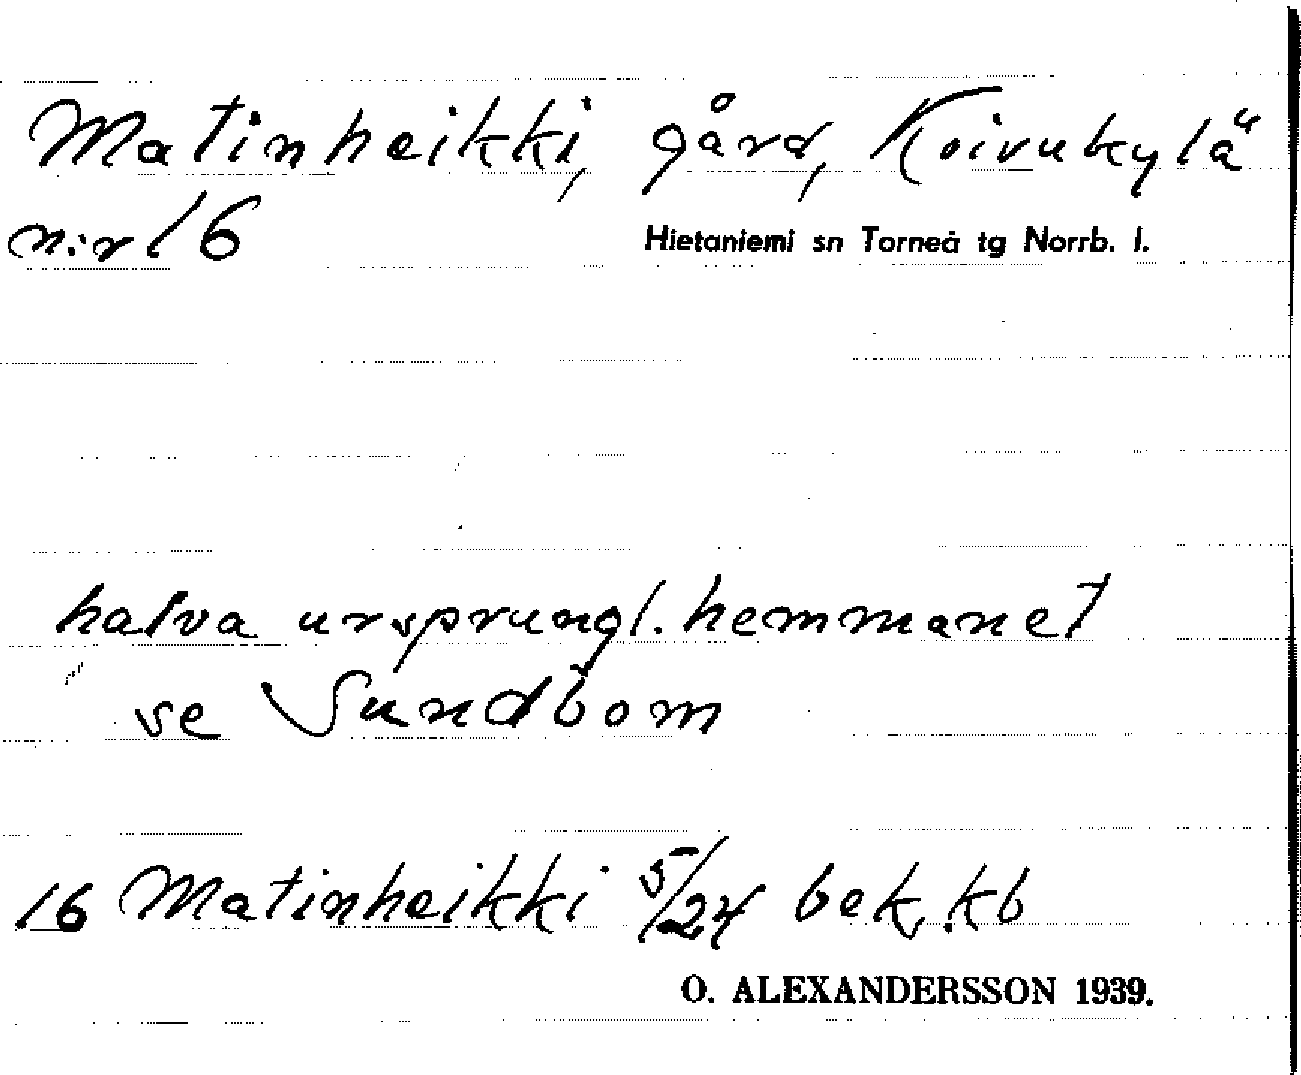 Matinheikki, gård, Koivukylä
n:r 16
Hietaniemi sn Torneå tg Norrb. l.
halva ursprungl. hemmanet
se Sundbom
16 Matinheikki 5/24 bek. kb
O. ALEXANDERSSON 1939.